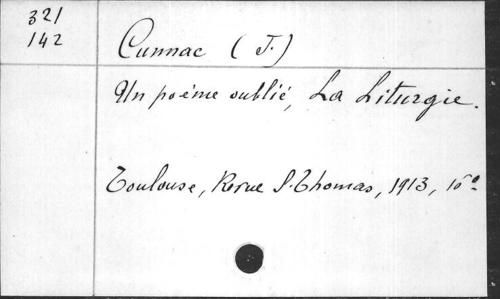 321
142
Cunnac (J.)
Un poème oublié, La Liturgie.
Toulouse, Revue S. Thomas, 1913, 16º